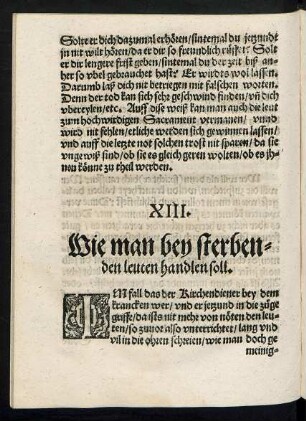 Solte er dich dazumal erhören/sintemal du jetzundt
jn nit wilt hören/da er dir so freundlich rüffet? Solt
er dir lengere frist geben/sintemal du der zeit biß an-
her so vbel gebrauchet hast? Er wirdts wol lassen.
Darumb laß dich nit betriegen mit falschen worten.
Denn der tod kan sich sehr geschwind finden/vñ dich
vbereylen/etc. Auff dise weiß kan man auch die leut
zum hochwirdigen Sacrament vermanen/ vnnd
wird nit fehlen/etliche werden sich gewinnen lassen/
vnd auff die letzte not solchen trost nit sparen/da sie
vngewiß sind/ob sie es gleich geren wolten/ob es jh-
nen könne zu theil werden.
XIII.
Wie man bey sterben-
den leuten handlen soll.
IM fall das der Kirchendiener bey dem
krancken wer/vnd er jezund in die züge
griffe/da ists nit mehr von nöten den leu-
ten/so zuuor also vnterrichtet/lang vnd
vil in die ohren schreien/wie man doch ge
meinig-